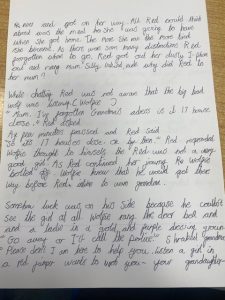 As Red said goodbye on her way. All Red could think
about was the meal he/she was going to have
when she got home. The more she ran the more tired
she became. As there was som many distractions Red
forgotten what to go. Red got out her daily I phone
out and rang mum. Silly old Red, why did Red to
her mum?
While chatting Red was not awear that the big bad
wolf was lisning. (Wolfie)
"Mum, I've forgoten Grandma's adress is it 17 house
close." Red asked
As few minutes passed and Red said
"So it's 17 houses close. ok by then." Red responded
Wolfie thought to himself the Red was not a very
good girl. As Red continued her journey, Mr Wolfie
bolted off. Wolfie knew that he would get there
way before Red. able to own grandma.
Somehow luck was on his side because he couldn't
see the girl at all. Wolfie rang the door bell and
and a ladie in a gold and purple dressing gown
"Go away or I'll call the police." Shreiked Grandma
Please don't I am here to help you. Listen a girl in
a red jumper wants to rob you - your granddaughter -